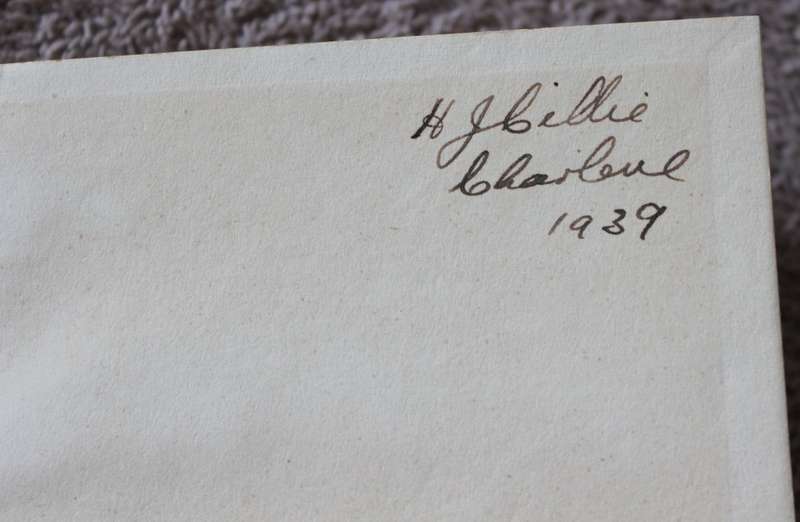 H J Cillie
Charleve
1939